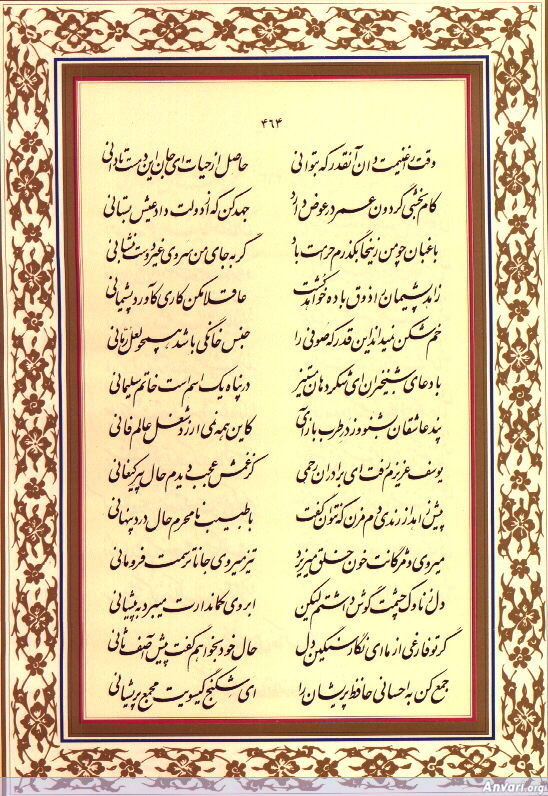 ۴۶۴
وقت را غنیمت دان آنقدر که بتوانی حاصل از حیات ای جان این دمست تا دانی
کام بخشی گردون عمر در عوض دارد جهد کن که از دولت داد عیش بستانی
باغبان چو من زینجا بگذرم حرامت باد گر به جای من سروی غیر دوست بنشانی
زاهد پشیمان را ذوق باده خواهد کشت عاقلا مکن کاری کآورد پشیمانی
خم شکن نمیداند این قدر که صوفی را جنس خانگی باشد همچو لعل رمانی
با دعای شبخیزان ای شکر دهان مستیز در پناه یک اسم است خاتم سلیمانی
پند عاشقان بشنو وز در طرب بازآی کاین همه نمی ارزد شغل عالم فانی
یوسف عزیزم رفت ای برادران رحمی کز غمش عجب دیدم حال پیر کنعانی
پیش زاهد از رندی دم مزن که نتوان گفت با طبیب نامحرم حال درد پنهانی
میروی و مژگانت خون خلق میریزد تیز میروی جانا ترسمت فرومانی
دل ز ناوک چشمت گوش داشتم لیکن ابروی کماندارت میبرد به پیشانی
گر تو فارغی از ما ای نگار سنگین دل حال خود بخواهم گفت پیش آصف ثانی
جمع کن به احسانی حافظ پریشان را ای شکنج گیسویت مجمع پریشانی
Anvari.org